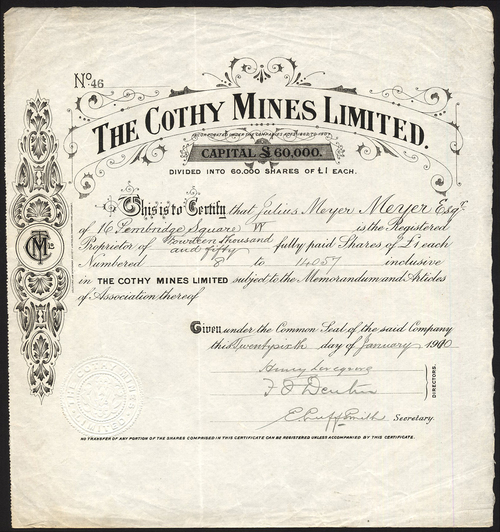 No. 46
THE COTHY MINES LIMITED.
INCORPORATED UNDER THE COMPANIES ACTS 1862 TO 1907
CAPITAL £ 60,000.
DIVIDED INTO 60,000 SHARES OF £1 EACH.
This is to Certify that Julius Meyer Meyer Esqr.
of 16 Pembridge Square W is the Registered
Proprietor of Fourteen thousand and fifty fully paid Shares of £1 each
Numbered 8 to 14057 inclusive
in THE COTHY MINES LIMITED subject to the Memorandum and Articles
of Association thereof
Given under the Common Seal of the said Company
this Twentysixth day of January 1910
Henry
DIRECTORS.
Smith Secretary.
NO TRANSFER OF ANY PORTION OF THE SHARES COMPRISED IN THIS CERTIFICATE CAN BE REGISTERED UNLESS ACCOMPANIED BY THIS CERTIFICATE.